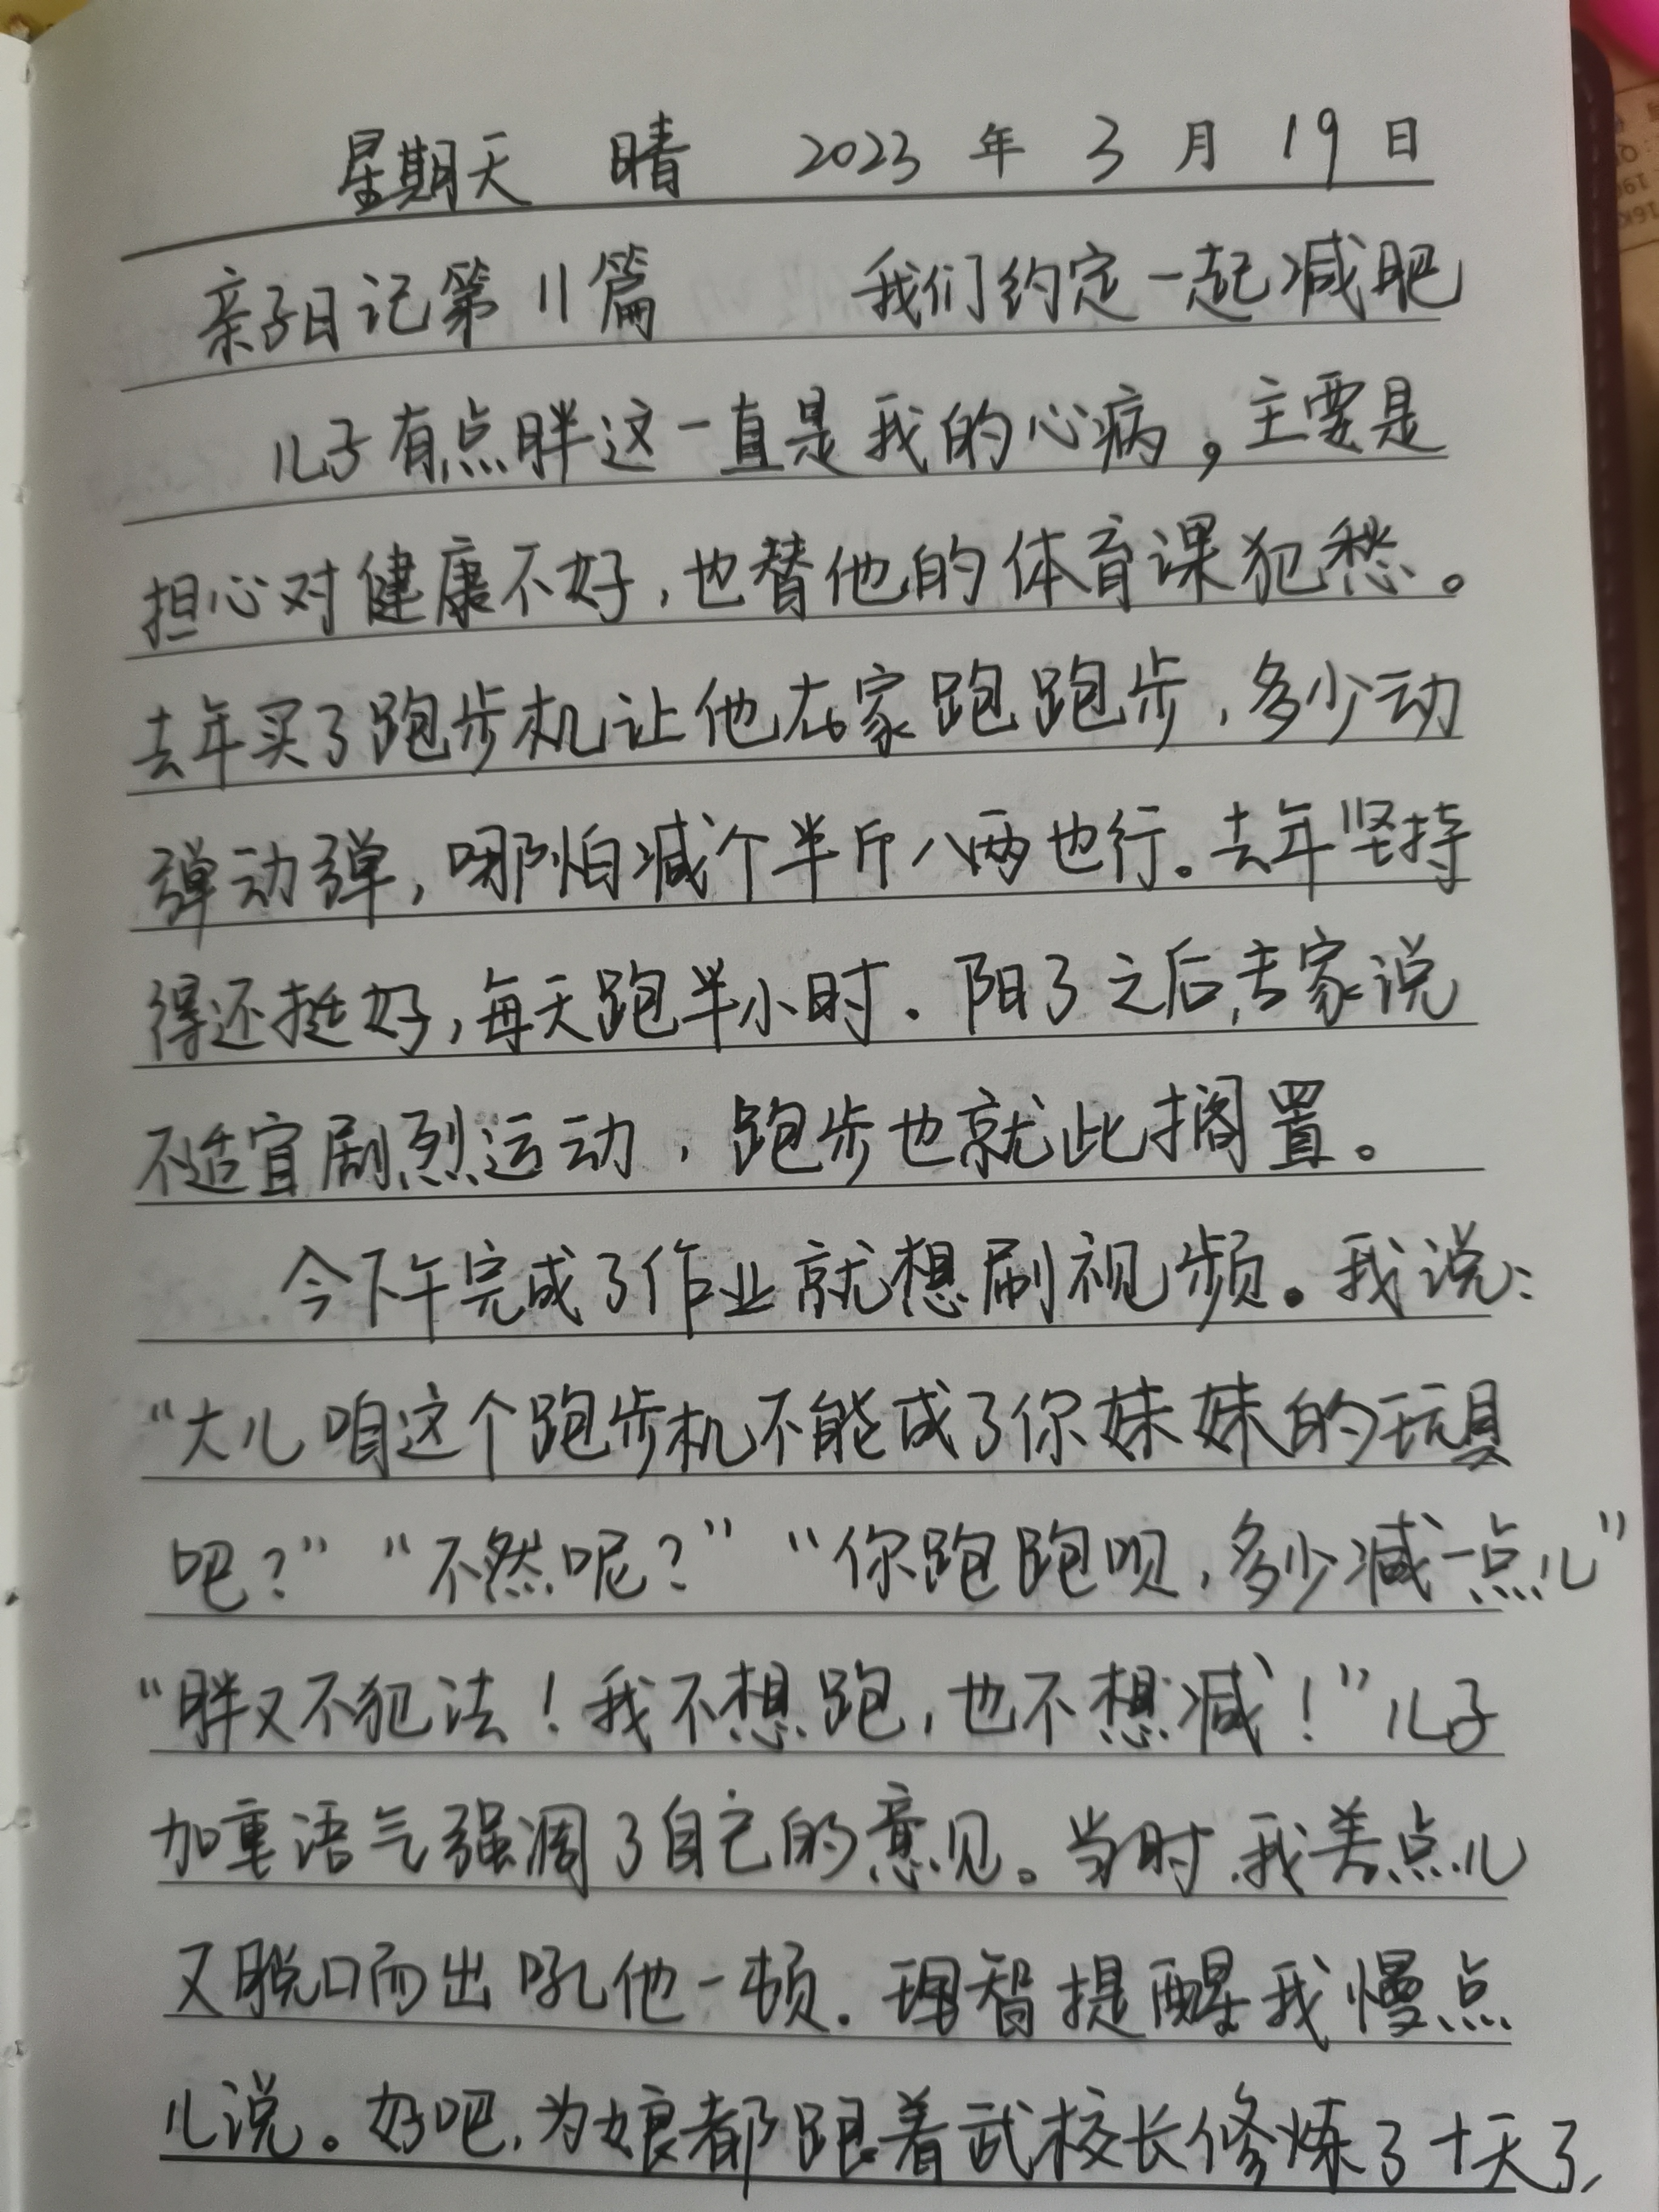 星期天 晴 2023 年 3 月 19 日
亲子日记第11篇 我们约定一起减肥
儿子有点胖这一直是我的心病，主要是
担心对健康不好，也替他的体育课犯愁。
去年买了跑步机让他在家跑跑步，多少动
弹动弹，哪怕减个半斤八两也行。去年坚持
得还挺好，每天跑半小时。阳了之后，专家说
不适宜剧烈运动，跑步也就此搁置。
今下午完成了作业就想刷视频。我说：
“大儿咱这个跑步机不能成了你妹妹的玩具
吧？”“不然呢？”“你跑跑呗，多少减一点儿”
“胖又不犯法！我不想跑，也不想减！”儿子
加重语气强调了自己的意见。当时，我差点儿
又脱口而出吼他一顿。理智提醒我慢点
儿说。好吧，为娘都跟着武校长修炼了十天了，